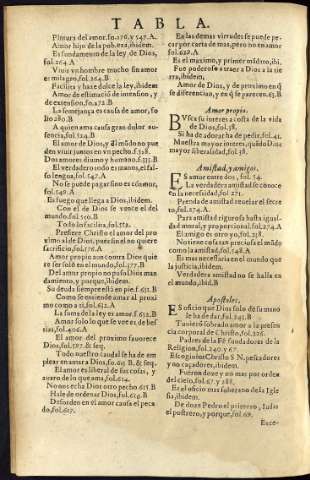 TABLA.
Pintura del amor. fo. 126. y 547. A.
Amor hijo de la pobreza, ibidem.
Es fundamento de la ley de Dios,
fol. 264. A
Viuir vn hombre mucho sin amor
es milagro, fol. 264. B
Facilita y haze dulce la ley, ibidem
Amor de estimació de intension, y
de extension, fo. 272. B
La semejança es causa de amor, fo
lio 280. B
A quien ama causa gran dolor au-
sencia, fol. 324. B
El amor de Dios, y d'l mũdo no pue
den viuir juntos en vn pecho. f. 328.
Dos amores diuino y humano. f. 335. B
El verdadero todo es manos, el fal-
so lengua, fol. 347. A
No se puede pagar sino es cõ amor,
fol. 349. A
Es fuego que llega a Dios, ibidem
Con el de Dios se vence el del
mundo, fol. 350. B
Todo lo facilita, fol. 352.
Prefiere Christo el amor del pro
ximo al de Dios, pues sin el no quiere
sacrificio, fol. 376. A
Amor propio aun contra Dios quie
re ser solo en el mundo, fol. 377. B
Del amor propio no pasa Dios man
damiento, y porque, ibidem.
Su deuda siempre está en pie, f. 651. B
Como se entiende amar al proxi
mo como a ti, fol. 652. A
La suma de la ley es amor, f. 652. B
Amor solo lo que se vee es de bes-
tias, fol. 400. A
El amor del proximo fauorece
Dios, fol. &seq.
Todo nuestro caudal se ha de em
plear en amar a Dios, fo. 605. B. & seq.
El amor es liberal de sus cosas, y
auaro de lo que ama, fol. 614.
No nos echa Dios otro pecho 615. B
Hale de ordenar Dios, fol. 619. B
Desorden en el amor causa el peca
do, fol. 617.
En las demas virtudes se puede pe-
car por carta de mas, pero no en amor
fol. 622. A
Es el maximo, y primer mãdato, ibi.
Fue poderoso a traer a Dios a la tie
rra, ibidem,
Amor de Dios, y de proximo en q̃
se diferencian, y en q̃ se parecen. 63. B
Amor propio.
BVsca su interes a costa de la vida
de Dios, fol. 38.
Si ha de adorar ha de pedir, fol. 41.
Muestra mayor interes, quãdo Dios
mayor liberalidad, fol. 38.
Amistad, y amigos.
ES amar entre dos, fol. 54.
La verdadera amistad se conoce
en la necessidad, fol. 271.
Prenda de amistad reuelar el secre
to, fol. 274. A.
Para amistad rigurosa basta igual-
dad moral, y proporcional, fol. 274. A
El amigo es otro yo, fol. 238.
No tiene cosa tan preciosa el mũdo
como la amistad, fol. 548. A
Es mas necessaria en el mundo que
la justicia, ibidem.
Verdadera amistad no se halla en
el mundo, ibid. B
Apostoles.
ES oficio que Dios solo de su mano
le ha de dar, fol. 245. B
Tuuierõ sobrado amor a la presen
cia corporal de Christo, fol. 226.
Padres de la Fè fundadores de la
Religion, fol. 240. y 67.
Escogiolos Christo S. N. pescadores
y no caçadores, ibidem.
Fueron doze y no mas por orden
del cielo, fol. 67. y 288.
Es el oficio mas soberano de la Ygle
sia, ibidem.
De doze Pedro el primero, Iudas
el postrero, y porque, fol. 69.
Esco-